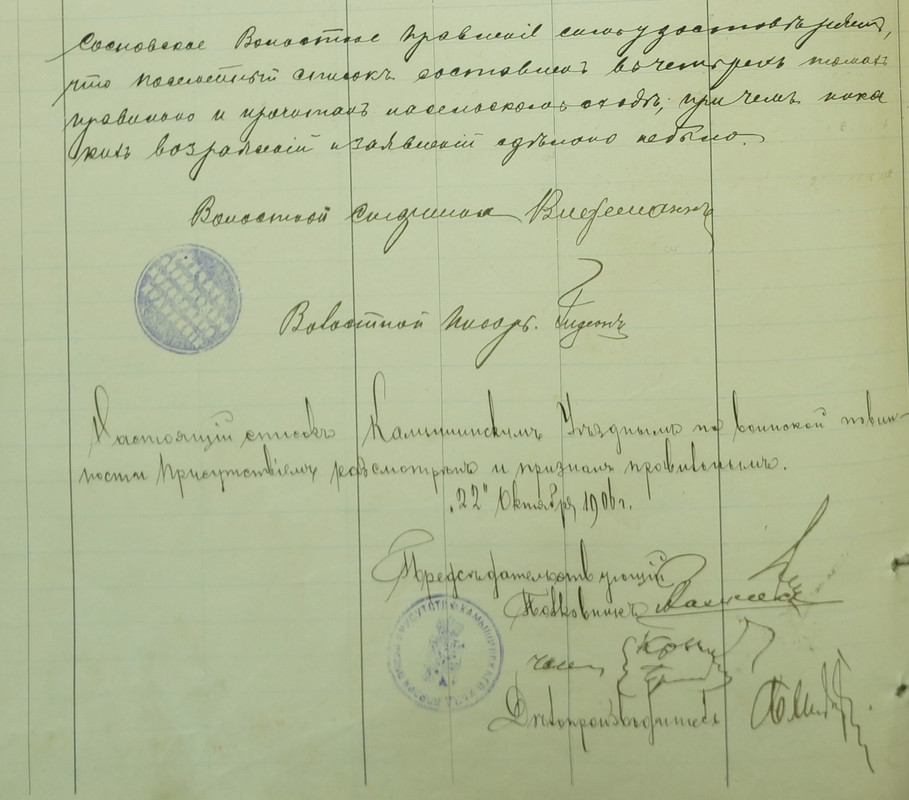 Сосновское Волостное Правленіе симъ удостовѣряетъ,
что посемейный списокъ составленъ въ четырехъ томахъ
правильно и прочитанъ на сельскомъ сходѣ, при чемъ ника
кихъ возраженій и заявленій сдѣлано не было.
Волостной Старшина
Волостной Писарь.
Настоящій списокъ Камышинскимъ Уѣзднымъ по воинской повин-
ности Присутствіемъ разсмотренъ и признанъ правильнымъ.
"22" Октября 1906 г.
Предсѣдательствующій
Полковникъ
ПРИСУТСТ КАМЫШИНСКАГО УѢЗДА
Члены
Дѣлопроизводитель